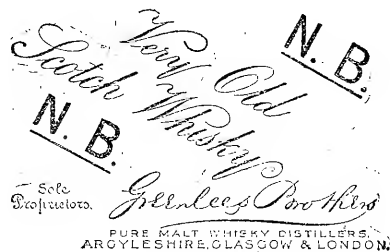 Very Old
Scotch Whisky
N. B.
N. B.
Sole
Proprietors.
Greenlees Brothers
PURE MALT WHISKY DISTILLERS,
ARGYLESHIRE, GLASGOW & LONDON.